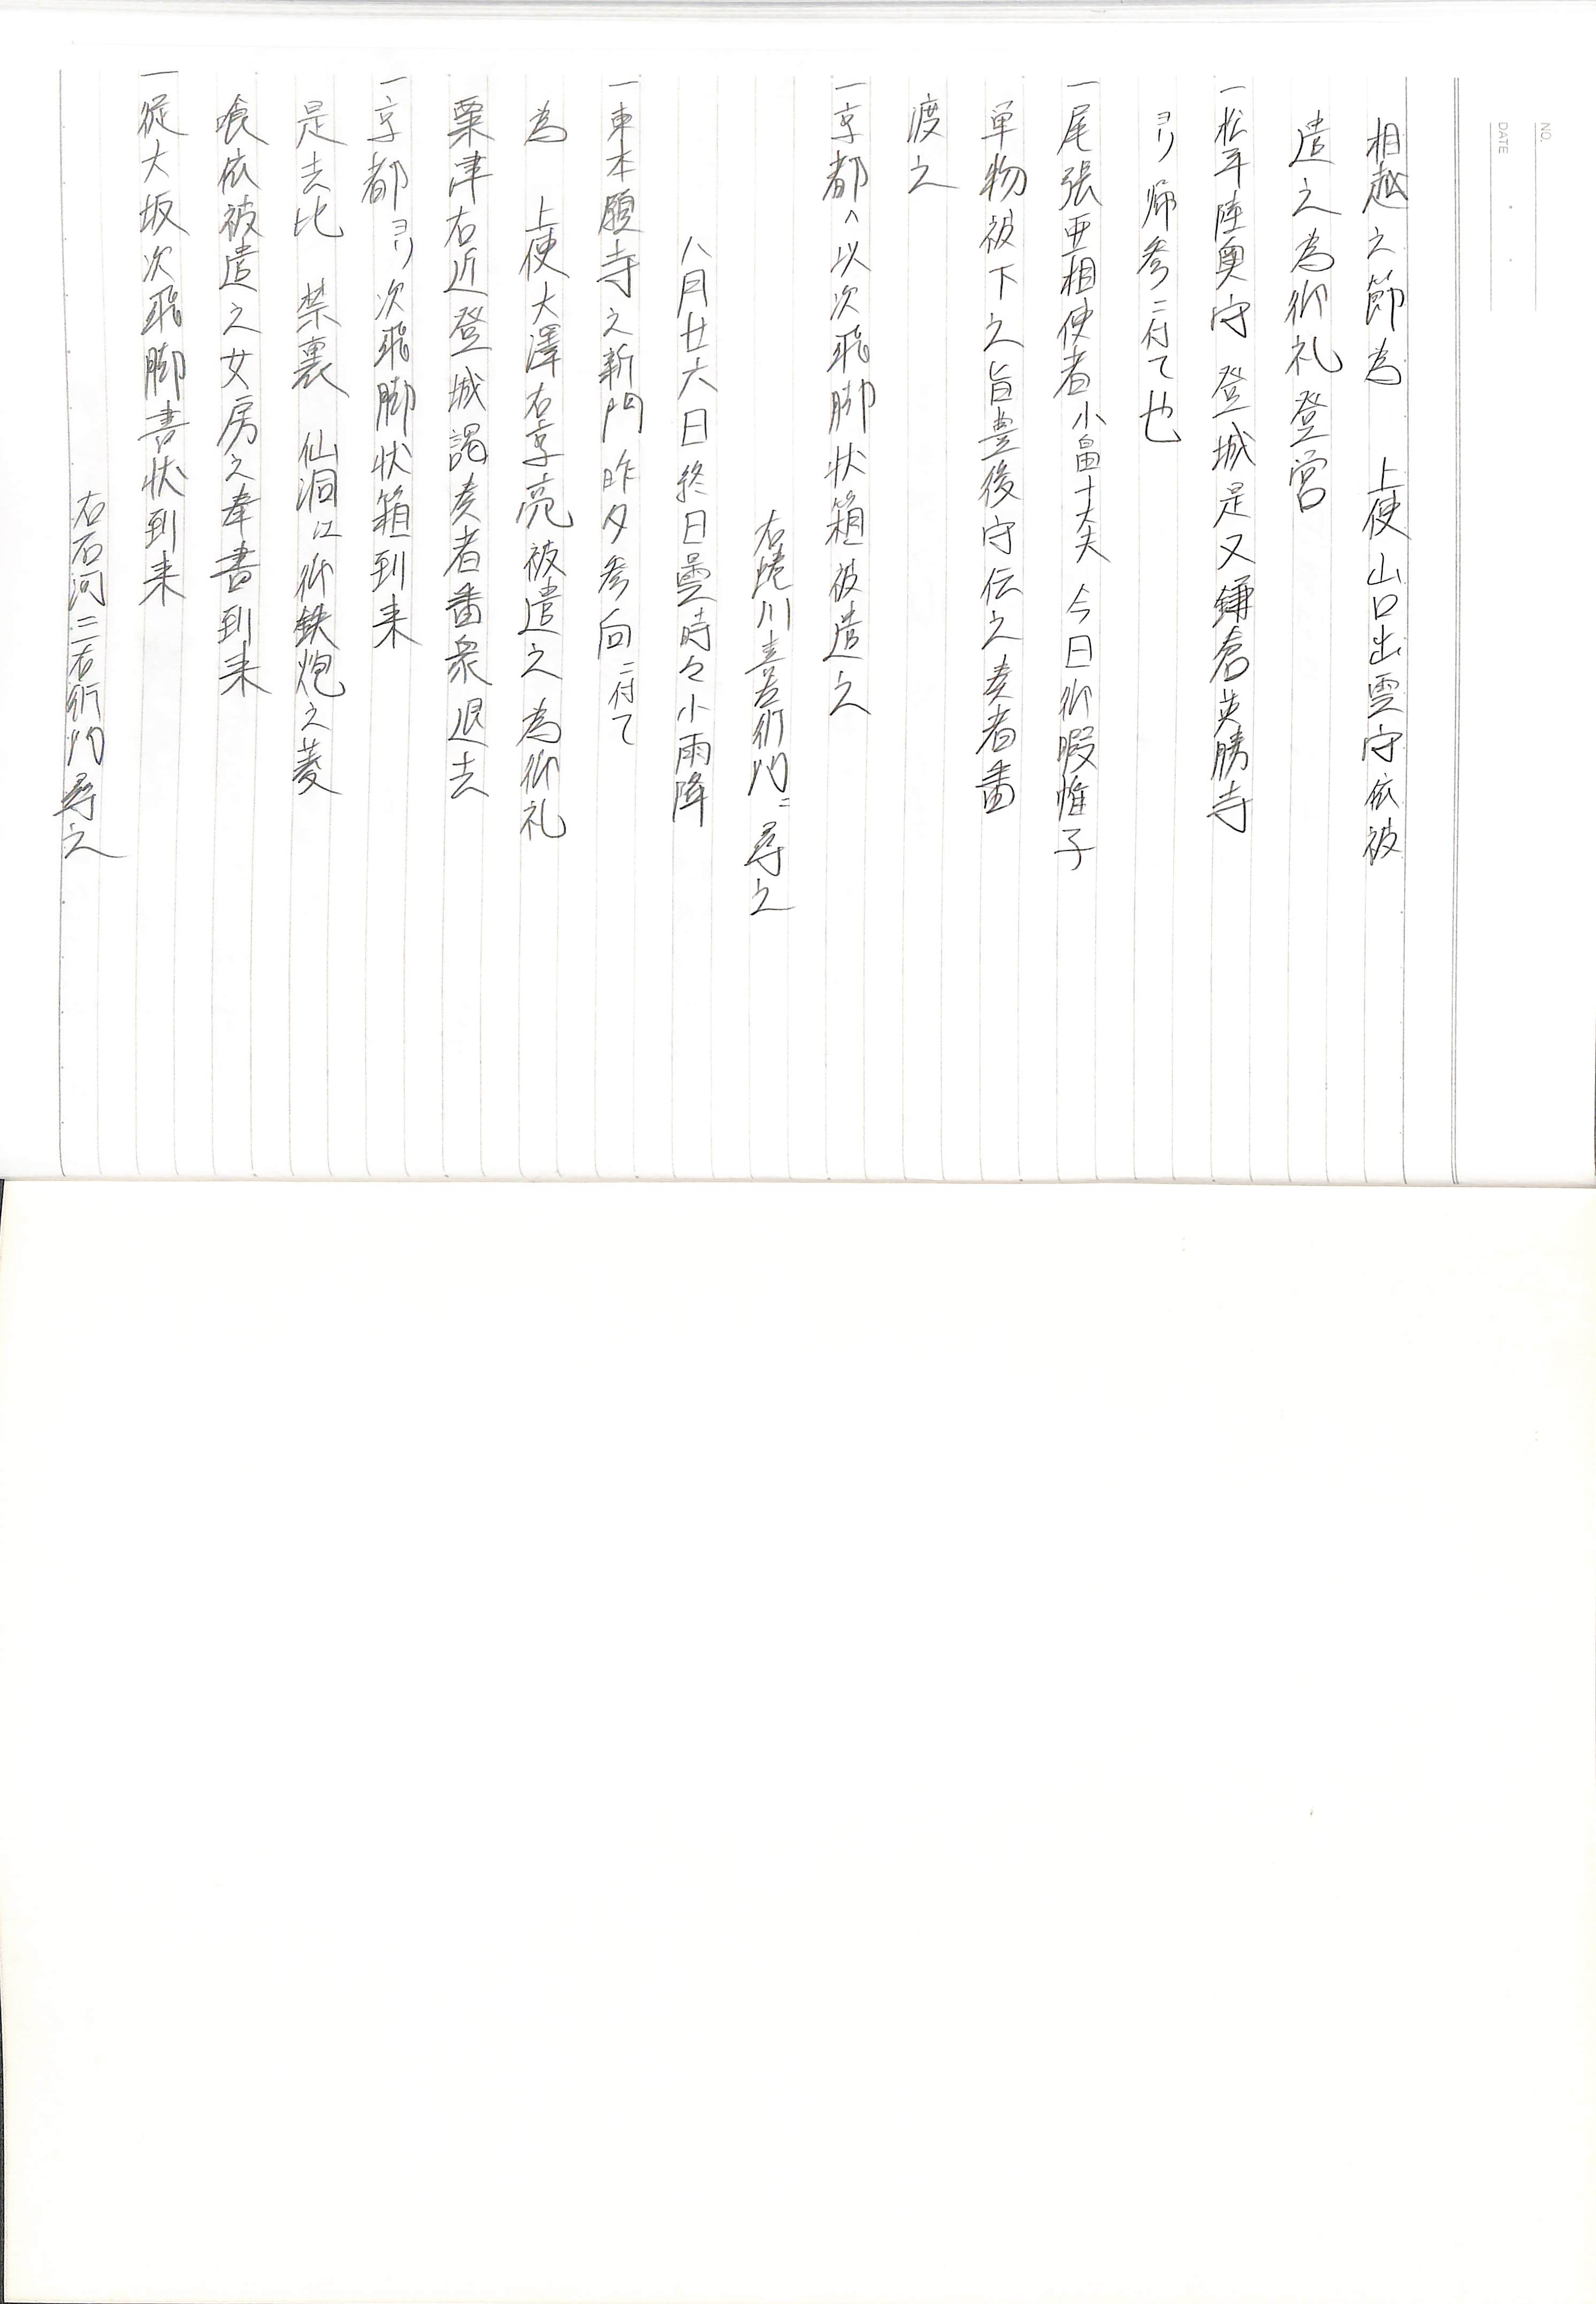 NO.
DATE
相越之節為　上使山口出雲守依被
遣之為御礼登営
一松平陸奥守　登城是又鎌倉英勝寺
ヨリ帰参ニ付て也
一尾張亜相使者小畠十大夫　今日御暇帷子
単物被下之旨豊後守伝之奏者番
渡之
一京都へ以次飛脚状箱被遣之
右蜷川喜左衛門ニ尋之
八月廿六日終日曇時々小雨降
一東本願寺之新門昨夕参向ニ付て
為　上使大澤右京亮被遣之為御礼
粟津右近登城謁奏者番衆退去
一京都ヨリ次飛脚状箱到来
是去比　禁裏　仙洞江御鉄炮之菱
喰依被遣之女房之奉書到来
一従大坂次飛脚書状到来
右石河三右衛門尋之